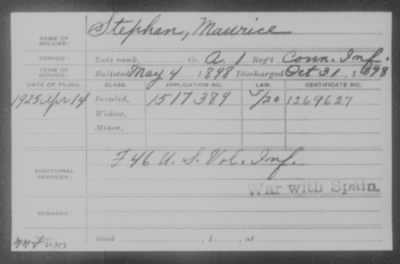 Stephan, Maurice
NAME OF SOLDIER:
SERVICE: Late rank, Co. A. 1 Reg't Conn. Inf.
TERM OF SERVICE: Enlisted May 4, 1898 Discharged Oct 31, 1898
DATE OF FILING. CLASS. APPLICATION NO. LAW. CERTIFICATE NO.
1925 Apr 14 Invalid, 1517389 1269627
Widow,
Minor,
ADDITIONAL SERVICES: F 46 U. S. Vol. Inf.
War with Spain.
REMARKS:
Died , 1 , at